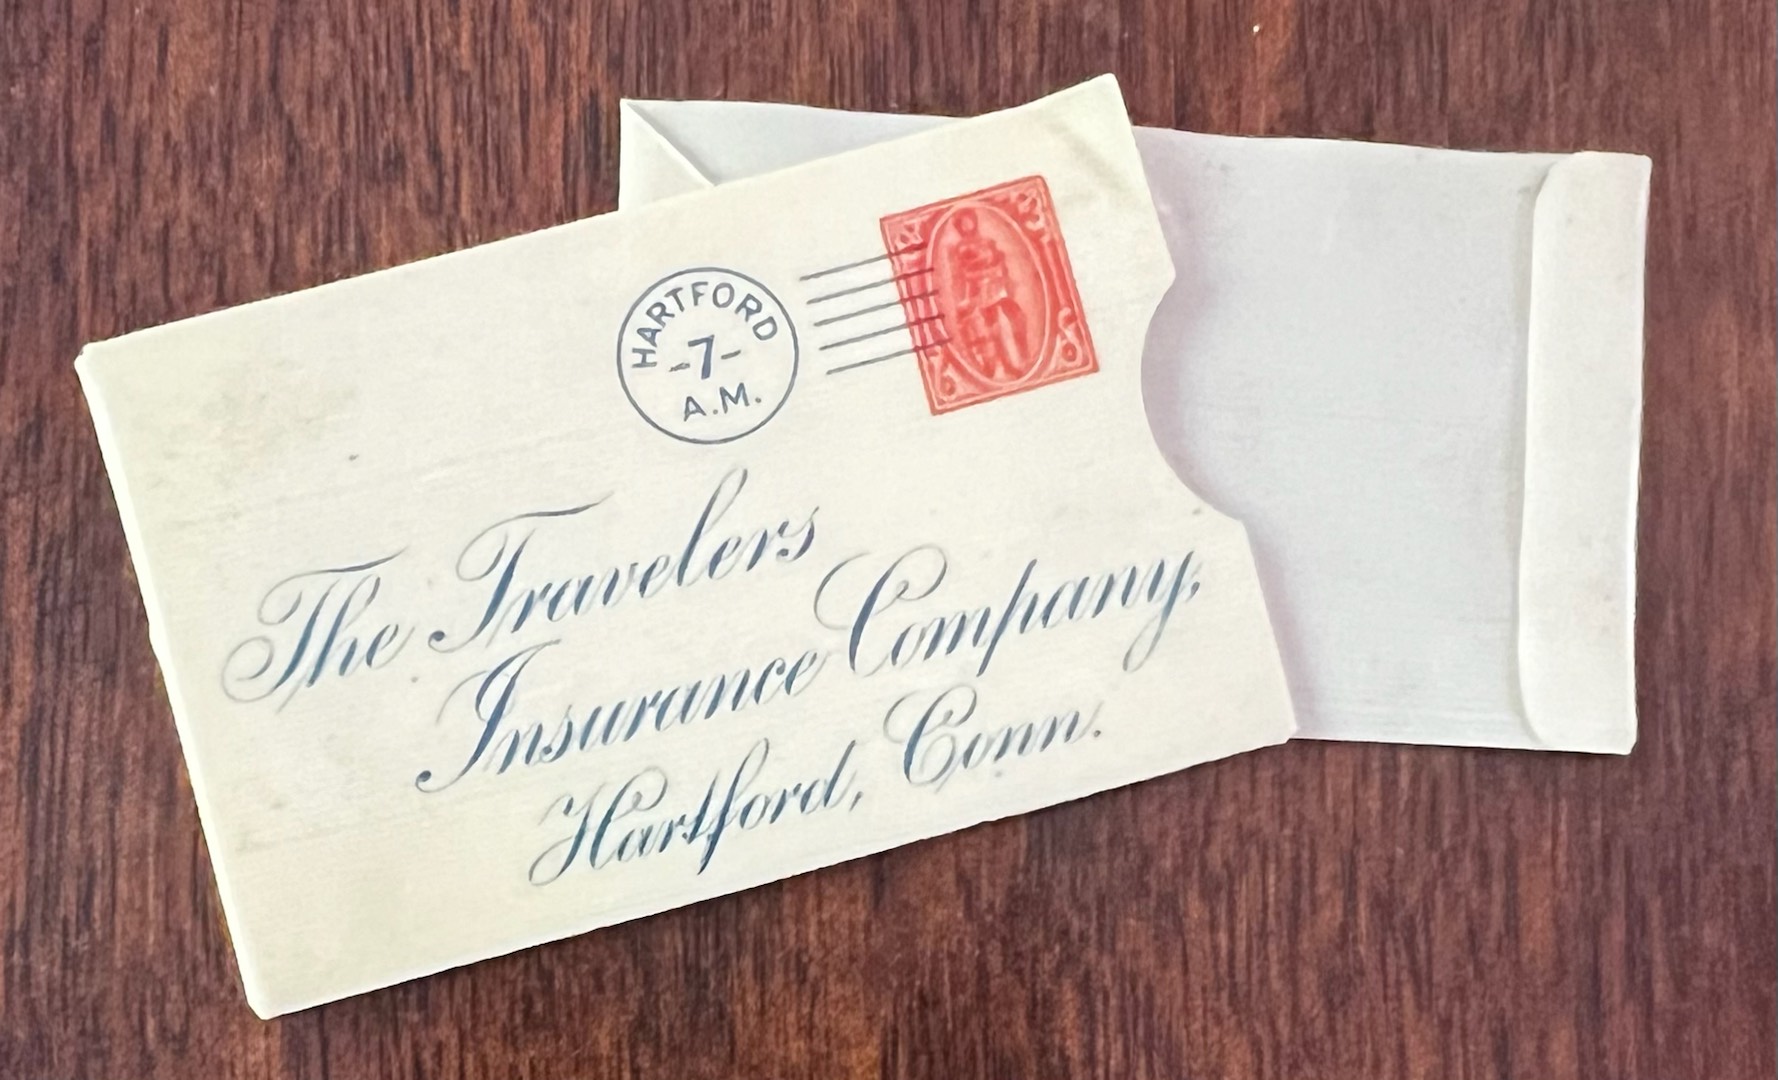 HARTFORD
-7-
A.M.
The Travelers
Insurance Company,
Hartford, Conn.